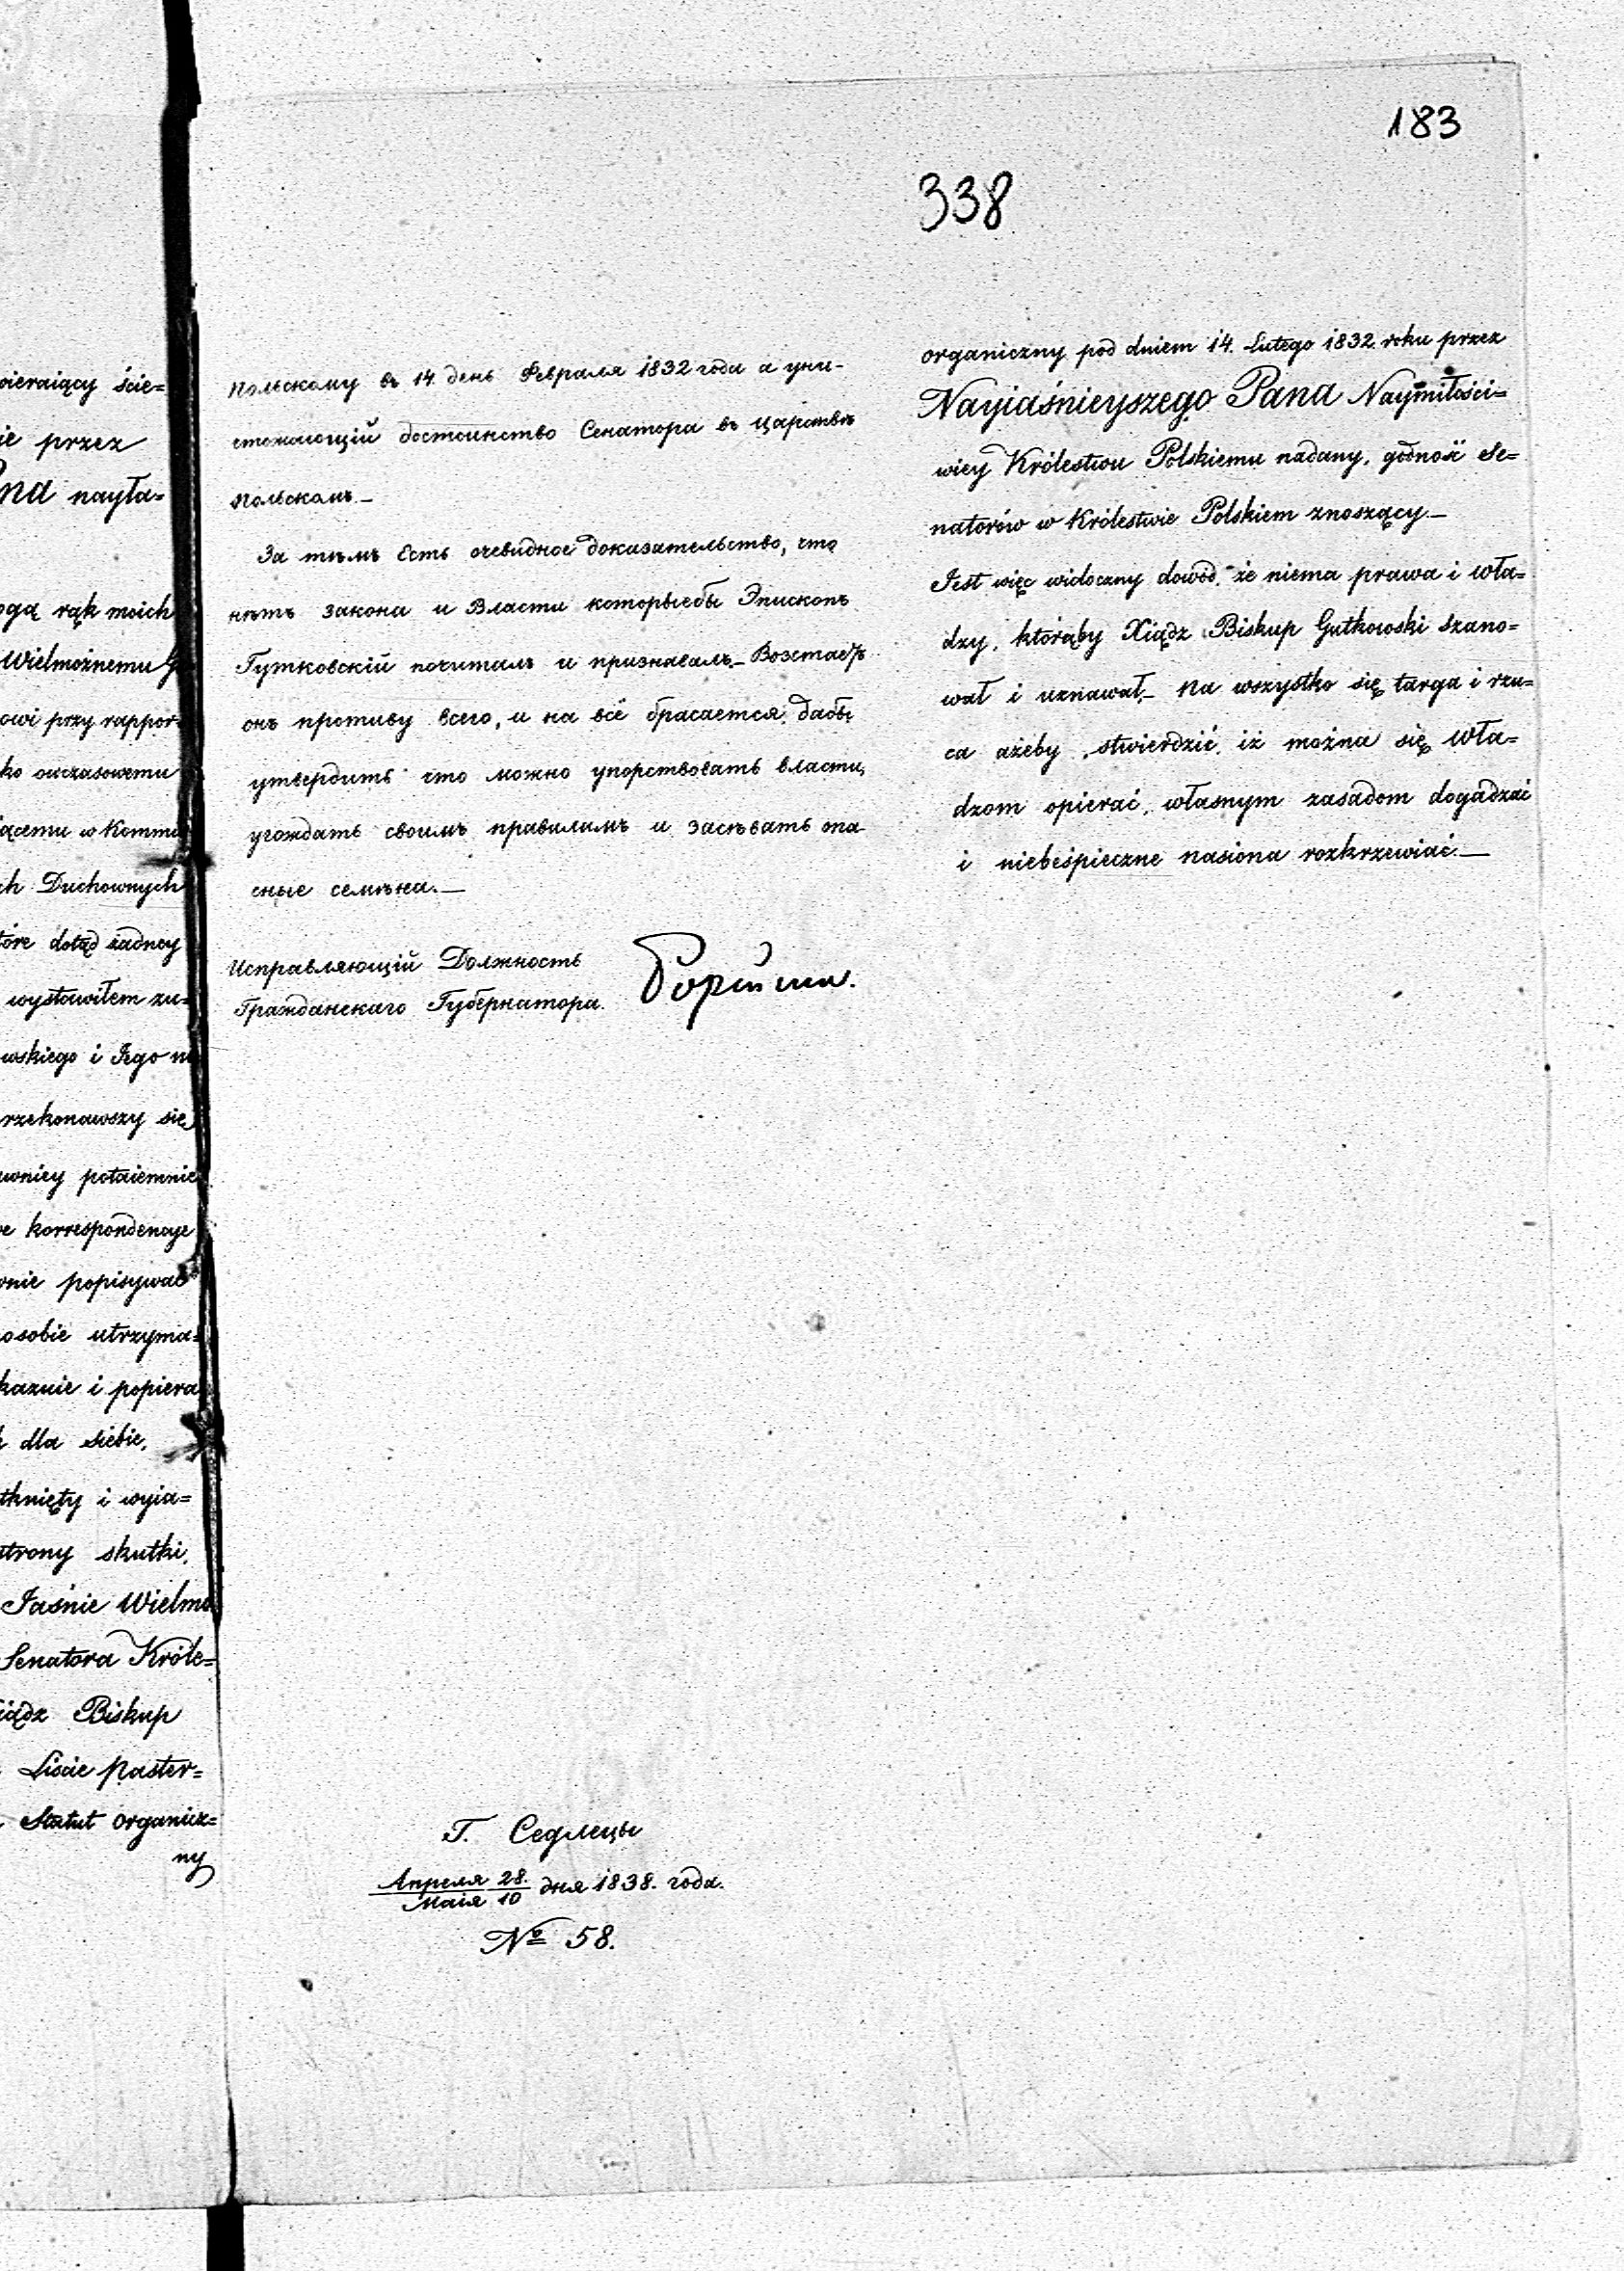 wieraiący ście=
ie przez
na nayła=
ogą rąk moich
Wielmożnemu
owi przy rappor
ko owczasowemu
iącemu w Kommi
ch Duchownych
tóre dotąd żadney
wystawiłem zu=
wskiego i Jego
rzekonawszy się
wniey potaiemnie
korrespondencye
wnie popisywać
osobie utrzyma=
kazuie i popiera
dla siebie,
tknięty i wyia=
strony skutki,
Jaśnie Wielmo
Senatora Króle=
iądz Biskup
Liście paster=
Statut organicz=
ny
183
338
Польскому въ 14 день Февраля 1832 года а уни-
стожающій достоинство Сенатора въ Царствѣ
Польскомъ.—
За тѣмъ есть очевидное доказательство, что
нѣтъ закона и Власти которыебы Эпископъ
Гутковскій почиталъ и признавалъ.— Возстаетъ
онъ противу всего, и на всё брасается, дабы
утвердить что можно упорствовать власти,
угождать своимъ правиламъ и засѣвать опа-
сные семѣна.—
Исправляющій Должность
Гражданскаго Губернатора.
Г. Седлецы
Апреля 28. / Маія 10 дня 1838. года.
№ 58.
organiczny pod dniem 14. Lutego 1832 roku przez
Nayiaśnieyszego Pana Naymiłości=
wiey Królestwu Polskiemu nadany, godność Se=
natorów w Królestwie Polskiem znoszący.—
Jest więc widoczny dowód, że niema prawa i wła=
dzy, którąby Xiądz Biskup Gutkowski szano=
wał i uznawał.— Na wszystko się targa i rzu=
ca ażeby stwierdzić, iż można się wła=
dzom opierać, własnym zasadom dogadzać
i niebeśpieczne nasiona rozkrzewiać.—